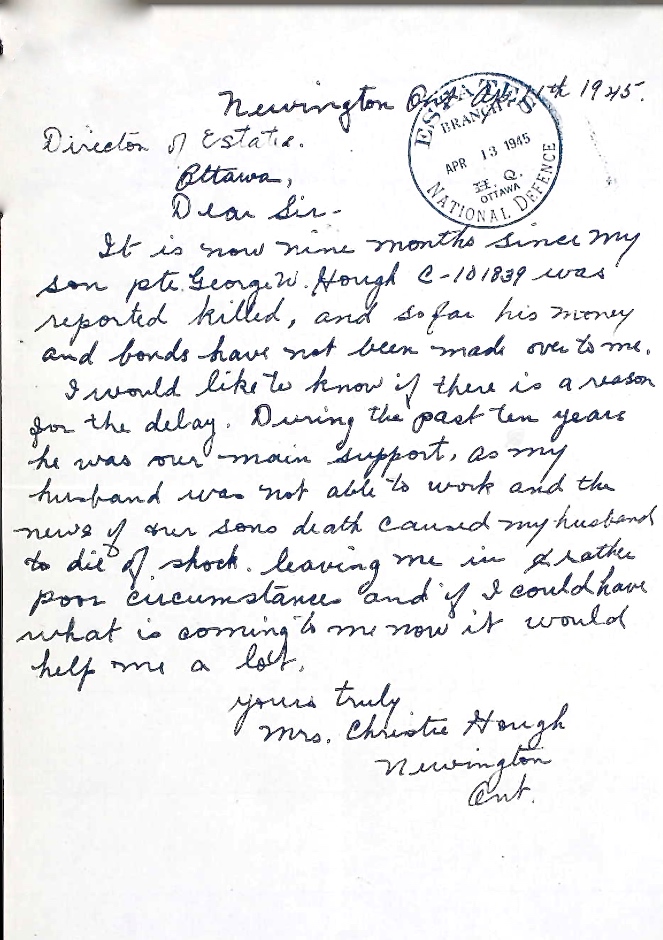 Newington Ont. Apr 11th 1945.
ESTATES
BRANCH
APR 13 1945
H. Q.
OTTAWA
NATIONAL DEFENCE
Director of Estates.
Ottawa,
Dear Sir-
It is now nine months since my
son pte. George W. Hough C-101839 was
reported killed, and so far his money
and bonds have not been made over to me.
I would like to know if there is a reason
for the delay. During the past ten years
he was our main support, as my
husband was not able to work and the
news of our sons death caused my husband
to die of shock. leaving me in rather
poor circumstances and if I could have
what is coming to me now it would
help me a lot.
yours truly
Mrs. Christie Hough
Newington
Ont.